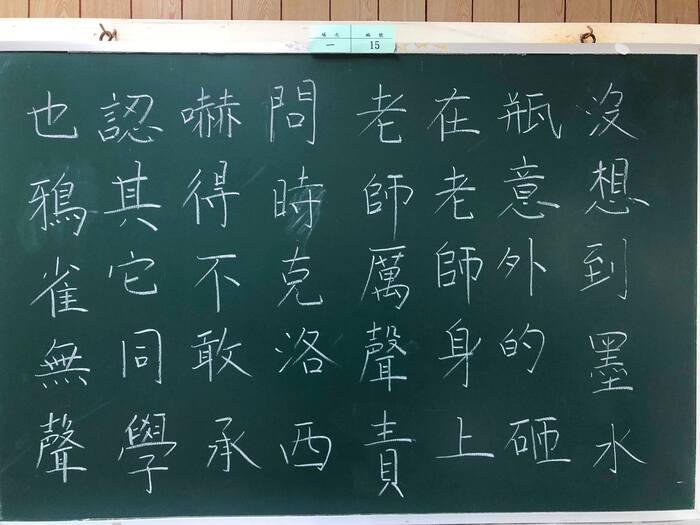 場次 編號
一 15
沒想到墨水
瓶意外的砸
在老師身上
老師厲聲責
問時克洛西
嚇得不敢承
認其它同學
也鴉雀無聲